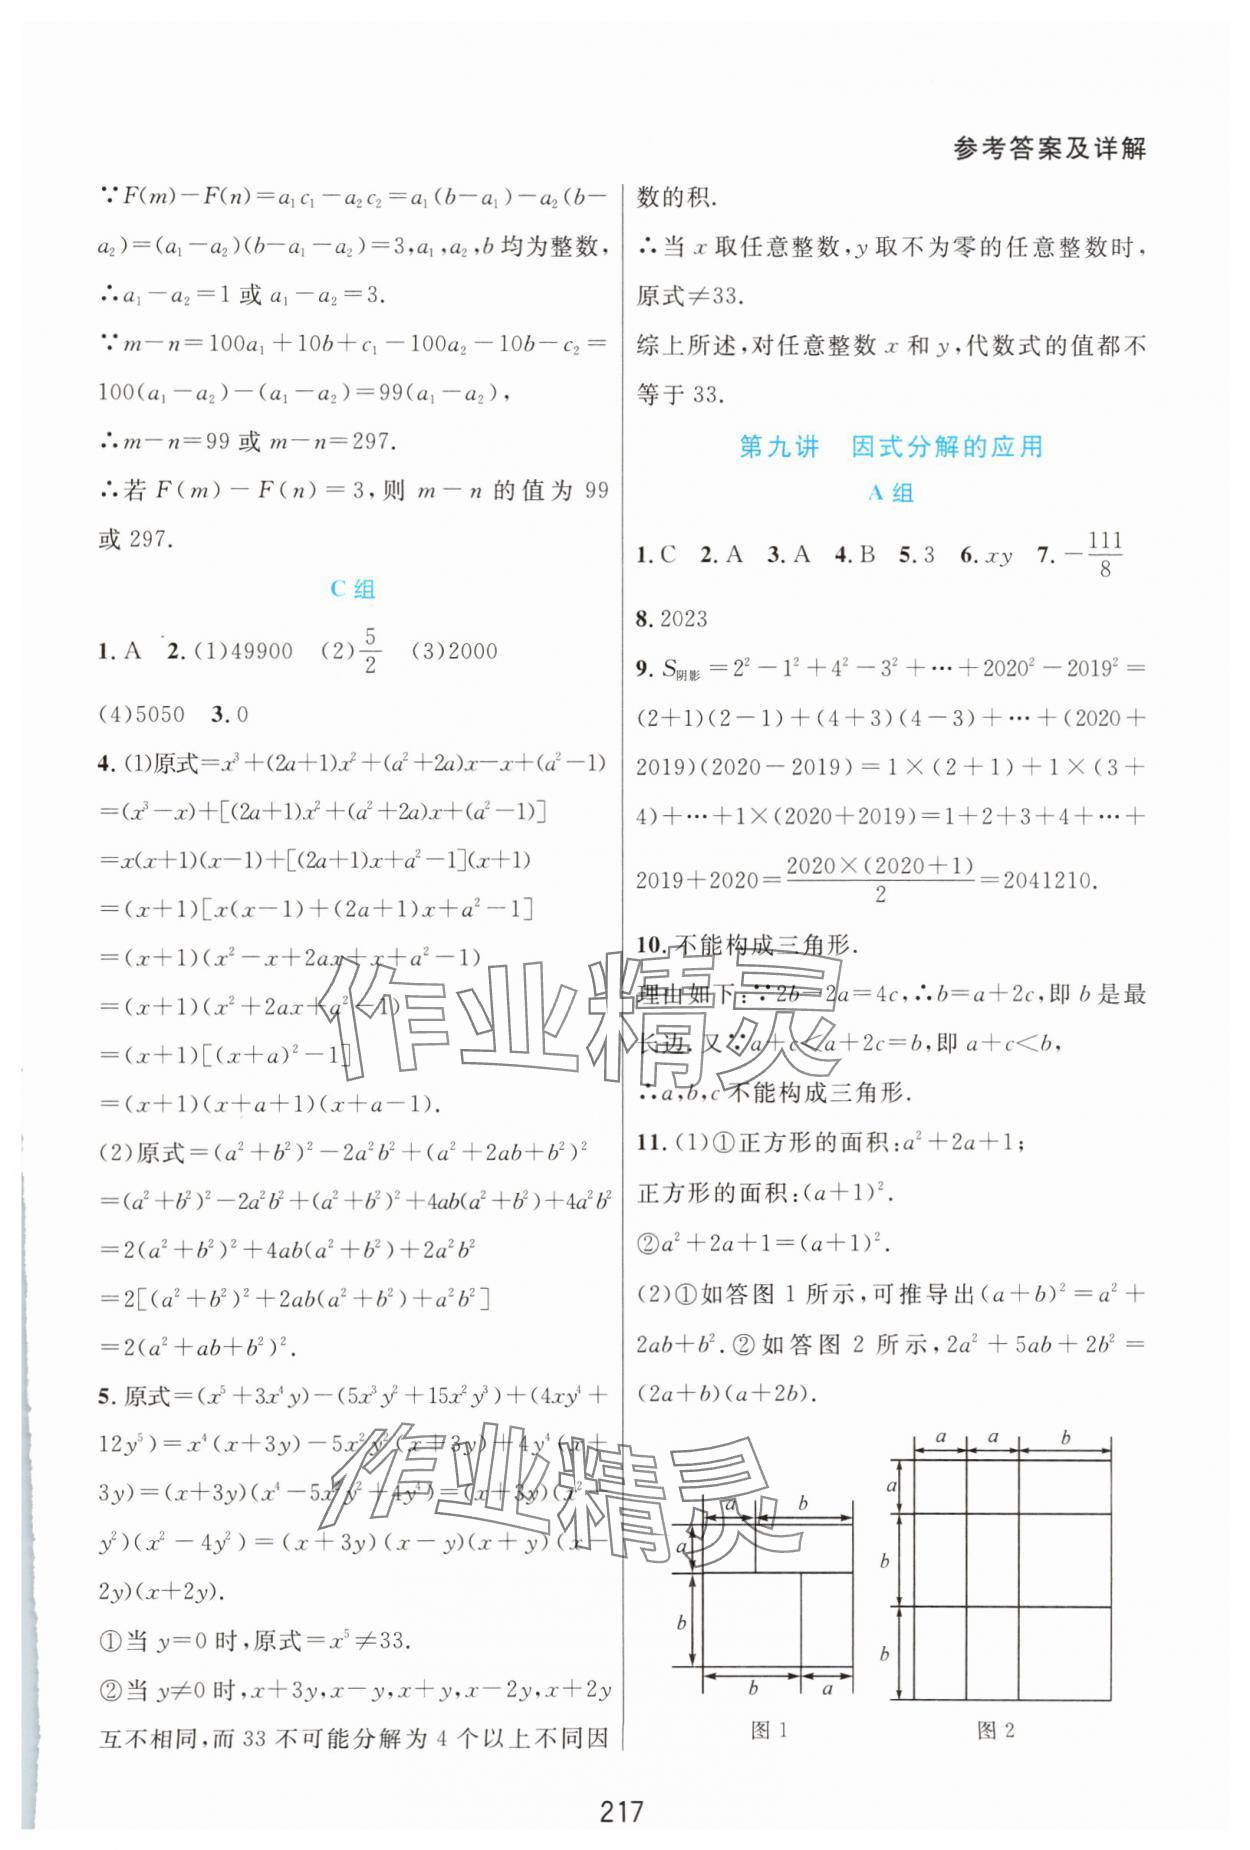 参考答案及详解
∵F(m)－F(n)＝a₁c₁－a₂c₂＝a₁(b－a₁)－a₂(b－
a₂)＝(a₁－a₂)(b－a₁－a₂)＝3,a₁,a₂,b均为整数,
∴a₁－a₂＝1或a₁－a₂＝3.
∵m－n＝100a₁＋10b＋c₁－100a₂－10b－c₂＝
100(a₁－a₂)－(a₁－a₂)＝99(a₁－a₂),
∴m－n＝99或m－n＝297.
∴若F(m)－F(n)＝3,则m－n的值为99
或297.
C组
1. A 2. (1)49900 (2)5/2 (3)2000
(4)5050 3. 0
4. (1)原式＝x³＋(2a＋1)x²＋(a²＋2a)x－x＋(a²－1)
＝(x³－x)＋[(2a＋1)x²＋(a²＋2a)x＋(a²－1)]
＝x(x＋1)(x－1)＋[(2a＋1)x＋a²－1](x＋1)
＝(x＋1)[x(x－1)＋(2a＋1)x＋a²－1]
＝(x＋1)(x²－x＋2ax＋x＋a²－1)
＝(x＋1)(x²＋2ax＋a²－1)
＝(x＋1)[(x＋a)²－1]
＝(x＋1)(x＋a＋1)(x＋a－1).
(2)原式＝(a²＋b²)²－2a²b²＋(a²＋2ab＋b²)²
＝(a²＋b²)²－2a²b²＋(a²＋b²)²＋4ab(a²＋b²)＋4a²b²
＝2(a²＋b²)²＋4ab(a²＋b²)＋2a²b²
＝2[(a²＋b²)²＋2ab(a²＋b²)＋a²b²]
＝2(a²＋ab＋b²)².
5. 原式＝(x⁵＋3x⁴y)－(5x³y²＋15x²y³)＋(4xy⁴＋
12y⁵)＝x⁴(x＋3y)－5x²y²(x＋3y)＋4y⁴(x＋
3y)＝(x＋3y)(x⁴－5x²y²＋4y⁴)＝(x＋3y)(x²－
y²)(x²－4y²)＝(x＋3y)(x－y)(x＋y)(x－
2y)(x＋2y).
①当y＝0时,原式＝x⁵≠33.
②当y≠0时,x＋3y,x－y,x＋y,x－2y,x＋2y
互不相同,而33不可能分解为4个以上不同因
数的积.
∴当x取任意整数,y取不为零的任意整数时,
原式≠33.
综上所述,对任意整数x和y,代数式的值都不
等于33.
第九讲 因式分解的应用
A组
1. C 2. A 3. A 4. B 5. 3 6. xy 7. －111/8
8. 2023
9. S阴影＝2²－1²＋4²－3²＋…＋2020²－2019²＝
(2＋1)(2－1)＋(4＋3)(4－3)＋…＋(2020＋
2019)(2020－2019)＝1×(2＋1)＋1×(3＋
4)＋…＋1×(2020＋2019)＝1＋2＋3＋4＋…＋
2019＋2020＝2020×(2020＋1)/2＝2041210.
10. 不能构成三角形.
理由如下:∵2b－2a＝4c,∴b＝a＋2c,即b是最
长边.又∵a＋c＜a＋2c＝b,即a＋c＜b,
∴a,b,c不能构成三角形.
11. (1)①正方形的面积:a²＋2a＋1;
正方形的面积:(a＋1)².
②a²＋2a＋1＝(a＋1)².
(2)①如答图1所示,可推导出(a＋b)²＝a²＋
2ab＋b².②如答图2所示,2a²＋5ab＋2b²＝
(2a＋b)(a＋2b).
a b
a
b
b a
图1
a a b
a
b
b
图2
作业精灵
作业精灵
217